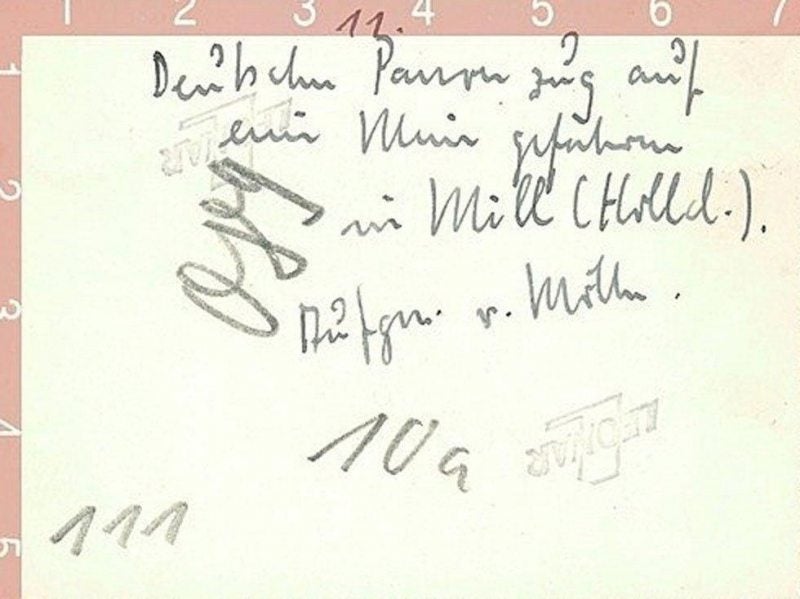 1 2 3 4 5 6 7
11.
Deutscher Panzerzug auf
eine Mine gefahren
in Mill (Holld.).
Aufgen. v. Möller.
10a
LEONAR
111
1
2
3
4
5